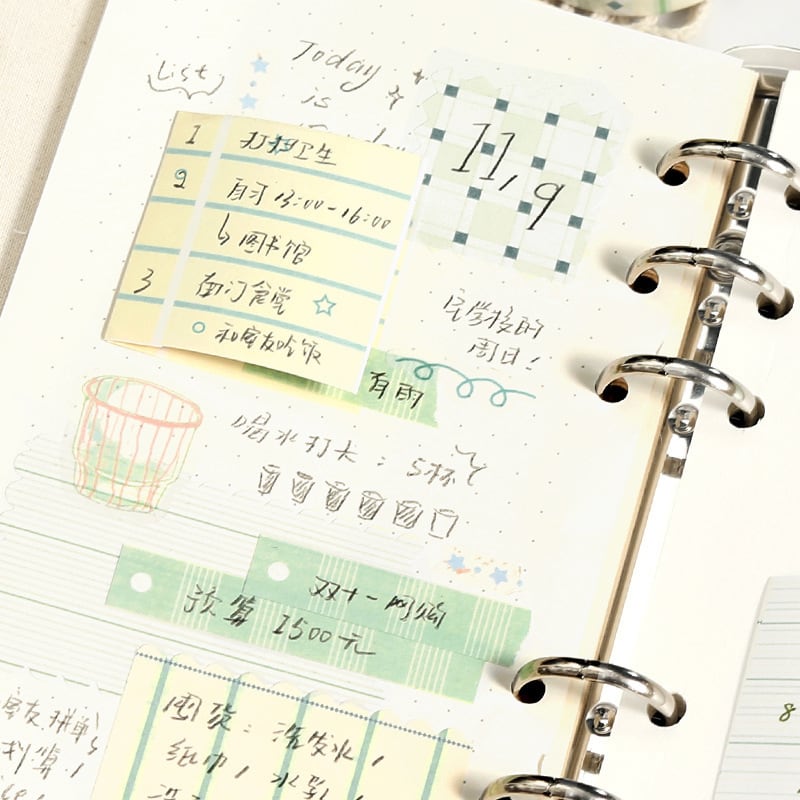 List
Today
is
11.9
1 打扫卫生
2 自习 13:00-16:00
↳ 图书馆
3 南门食堂 ☆
○ 和室友吃饭
在学校的
周日!
有雨
喝水打卡：5杯
双十一网购
预算 1500元
室友拼单
划算！
囤货：洗发水，
纸巾，水乳，
8